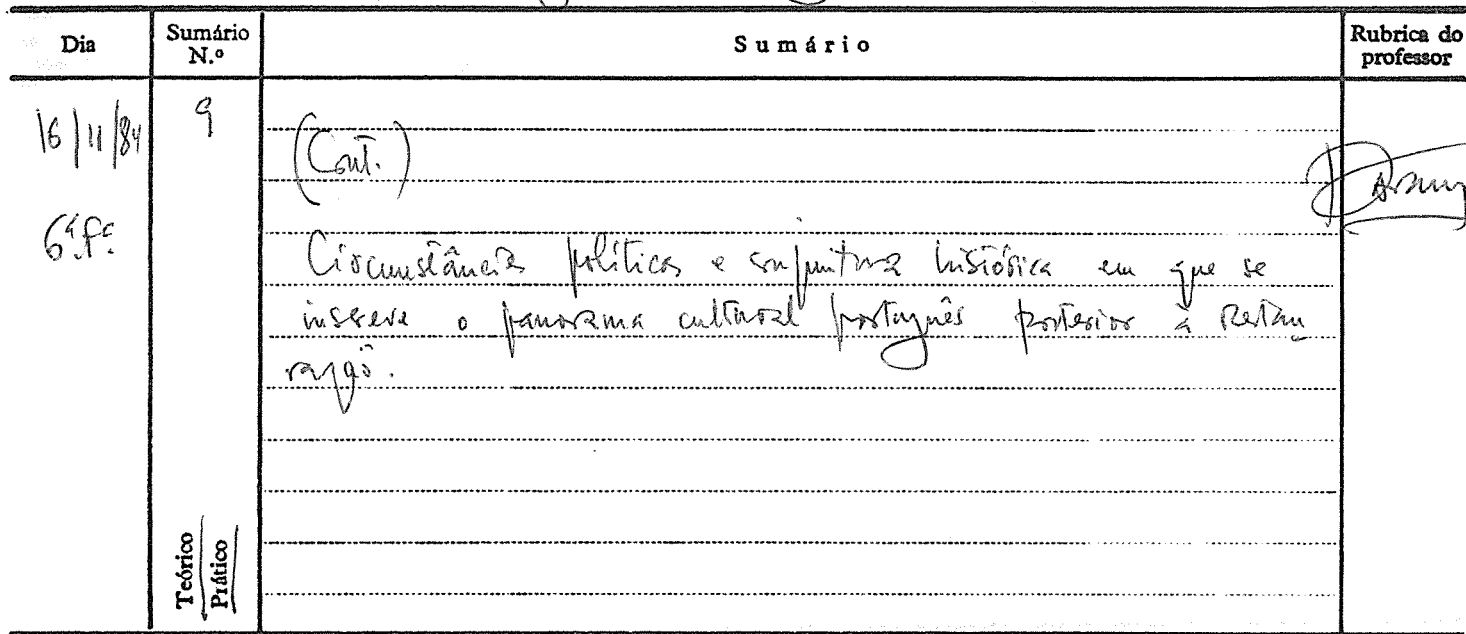 Dia Sumário N.º Sumário Rubrica do professor
16/11/84 9 (Cont.)
6ª fª
Circunstâncias políticas e conjuntura histórica em que se
insere o panorama cultural português posterior à Restau
ração.
Teórico
Prático